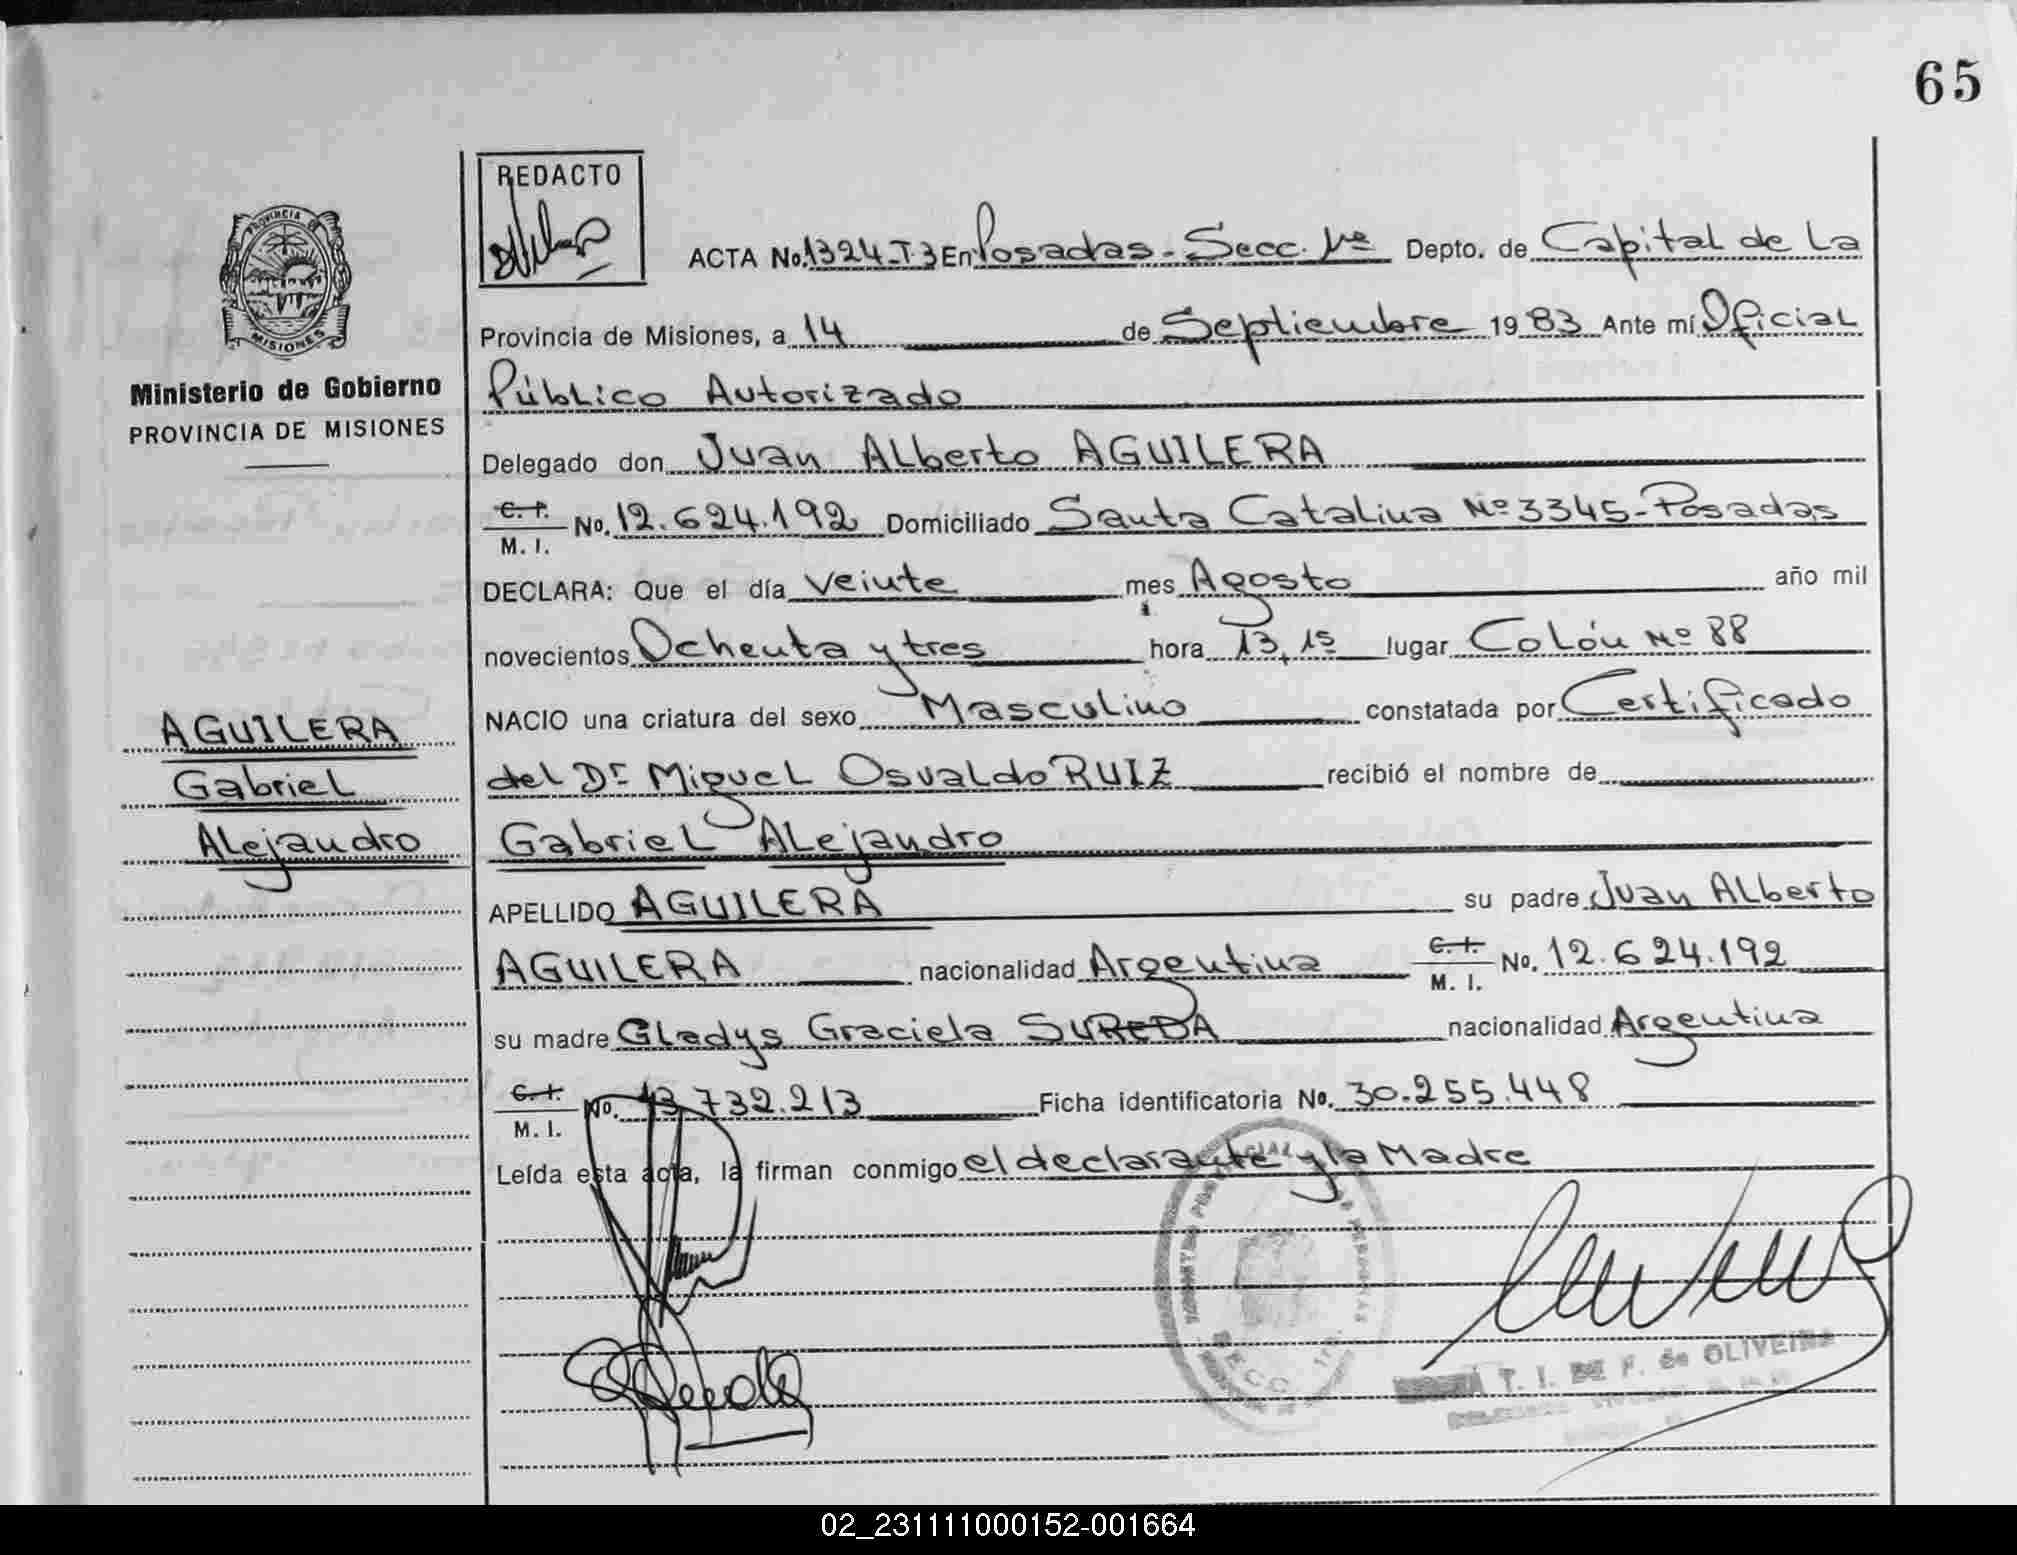 65
REDACTO
ACTA No. 1324-T.3 En Posadas - Secc. 1ra Depto. de Capital de La
Provincia de Misiones, a 14 de Septiembre 1983 Ante mí Oficial
Público Autorizado
PROVINCIA DE
MISIONES
Ministerio de Gobierno
PROVINCIA DE MISIONES
Delegado don Juan Alberto AGUILERA
C. I. M. I. No. 12.624.192 Domiciliado Santa Catalina Nº 3345 - Posadas
DECLARA: Que el día veinte mes Agosto año mil
novecientos Ochenta y tres hora 13,15 lugar Colón Nº 88
NACIO una criatura del sexo Masculino constatada por Certificado
del Dr Miguel Osvaldo RUIZ recibió el nombre de
Gabriel Alejandro
AGUILERA
Gabriel
Alejandro
APELLIDO AGUILERA su padre Juan Alberto
AGUILERA nacionalidad Argentina C. I. M. I. No. 12.624.192
su madre Gladys Graciela SUREDA nacionalidad Argentina
C. I. M. I. No. 13.732.213 Ficha identificatoria No. 30.255.448
Leída esta acta, la firman conmigo el declarante y la Madre
SECC. 1ra.
T. I. DE F. de OLIVEIRA
02_231111000152-001664